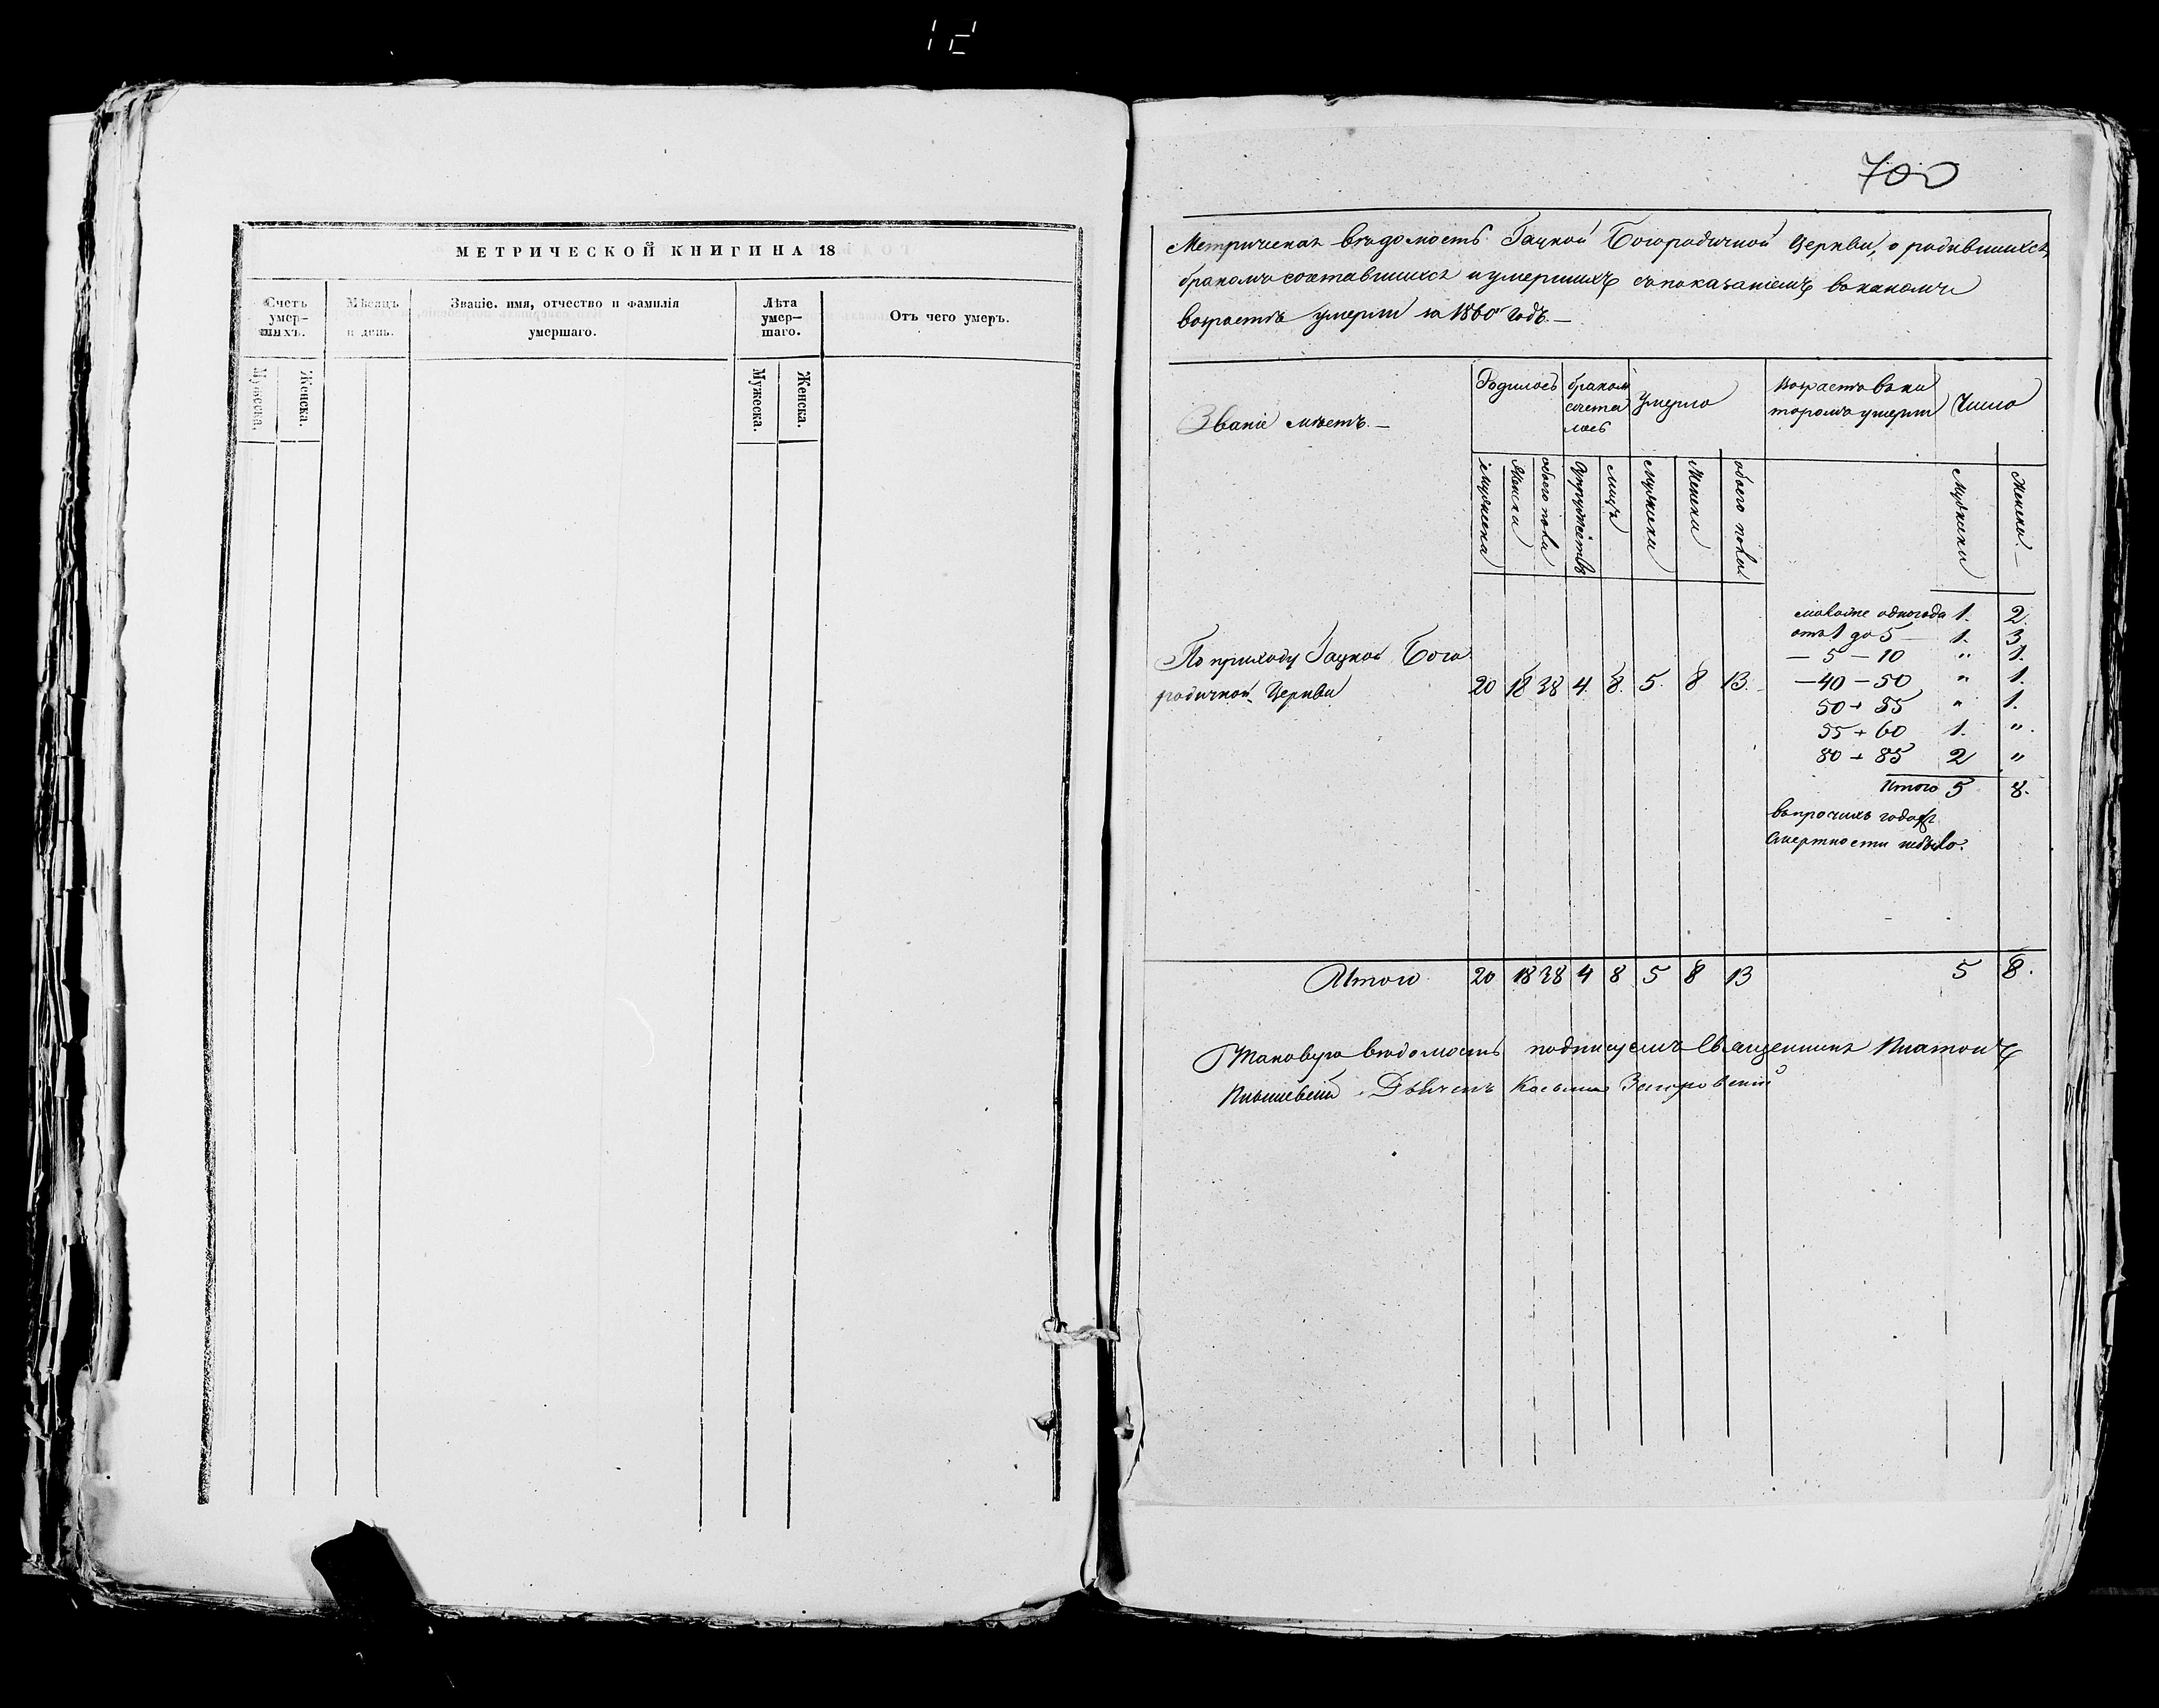 МЕТРИЧЕСКОЙ КНИГИ НА 18
Счетъ умер-шихъ.
Мѣсяцъ и день.
Званіе. имя, отчество и фамилія умершаго.
Лѣта умер-шаго.
Отъ чего умеръ.
Мужеска.
Женска.
Мужеска.
Женска.
700
Метрическая вѣдомость Гацкой Богородичной Церкви, о родившихся,
бракомъ сочетавшихся и умершихъ съ показаніемъ въ какомъ
возрастѣ умерли за 1860 годъ.—
Званіе мѣстъ.—
Родилось
браком сочета лось
Умерло
Возрастъ въ ко торомъ умерли
Число
Мужеска
Женска
обоего пола
Супружествъ
Лицъ
Мужеска
Женска
обоего пола
Мужеска
Женска.—
По приходу Гацкой Бого
родичной Церкви
20 18 38 4. 8. 5. 8 13.
моложе одного года 1. 2.
отъ 1 до 5 — 1. 3
— 5 — 10 " 1.
— 40 — 50 " 1.
50 + 55 " 1.
55 + 60 1. ".
80 + 85 2 "
Итого 5 8.
въ прочихъ годахъ
смертности небыло.
Итого 20 18 38 4 8 5 8 13 5 8.
Таковую вѣдомость подписуемъ Священникъ Платонъ
Дьячекъ Косьма